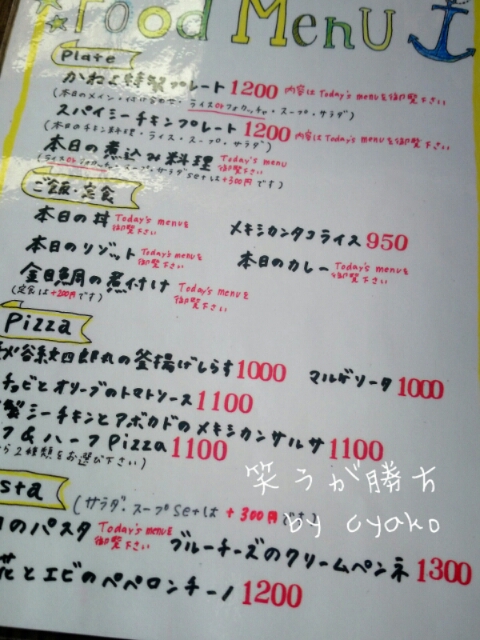 Food Menu
Plate
かねよ特製プレート 1200 内容はToday's menuを御覧下さい
(本日のメイン・付け合わせ・ライスorフォカッチャ・スープ・サラダ)
スパイシーチキンプレート 1200 内容はToday's menuを御覧下さい
(本日のチキン料理・ライス・スープ・サラダ)
本日の煮込み料理 Today's menu 御覧下さい
スープ・サラダsetは+300円です)
ご飯・定食
本日の丼 Today's menuを御覧下さい
メキシカンタコライス 950
本日のリゾット Today's menuを御覧下さい
本日のカレー Today's menuを御覧下さい
金目鯛の煮付け Today's menuを御覧下さい
(定食は+200円です)
Pizza
谷紋四郎丸の釜揚げしらす 1000
マルゲリータ 1000
チョビとオリーブのトマトソース 1100
製シーチキンとアボカドのメキシカンサルサ 1100
フ&ハーフPizza 1100
ら2種類をお選び下さい)
sta (サラダ・スープsetは+300円です)
のパスタ Today's menuを御覧下さい
ブルーチーズのクリームペンネ 1300
花とエビのペペロンチーノ 1200
笑うが勝ち
by cyako